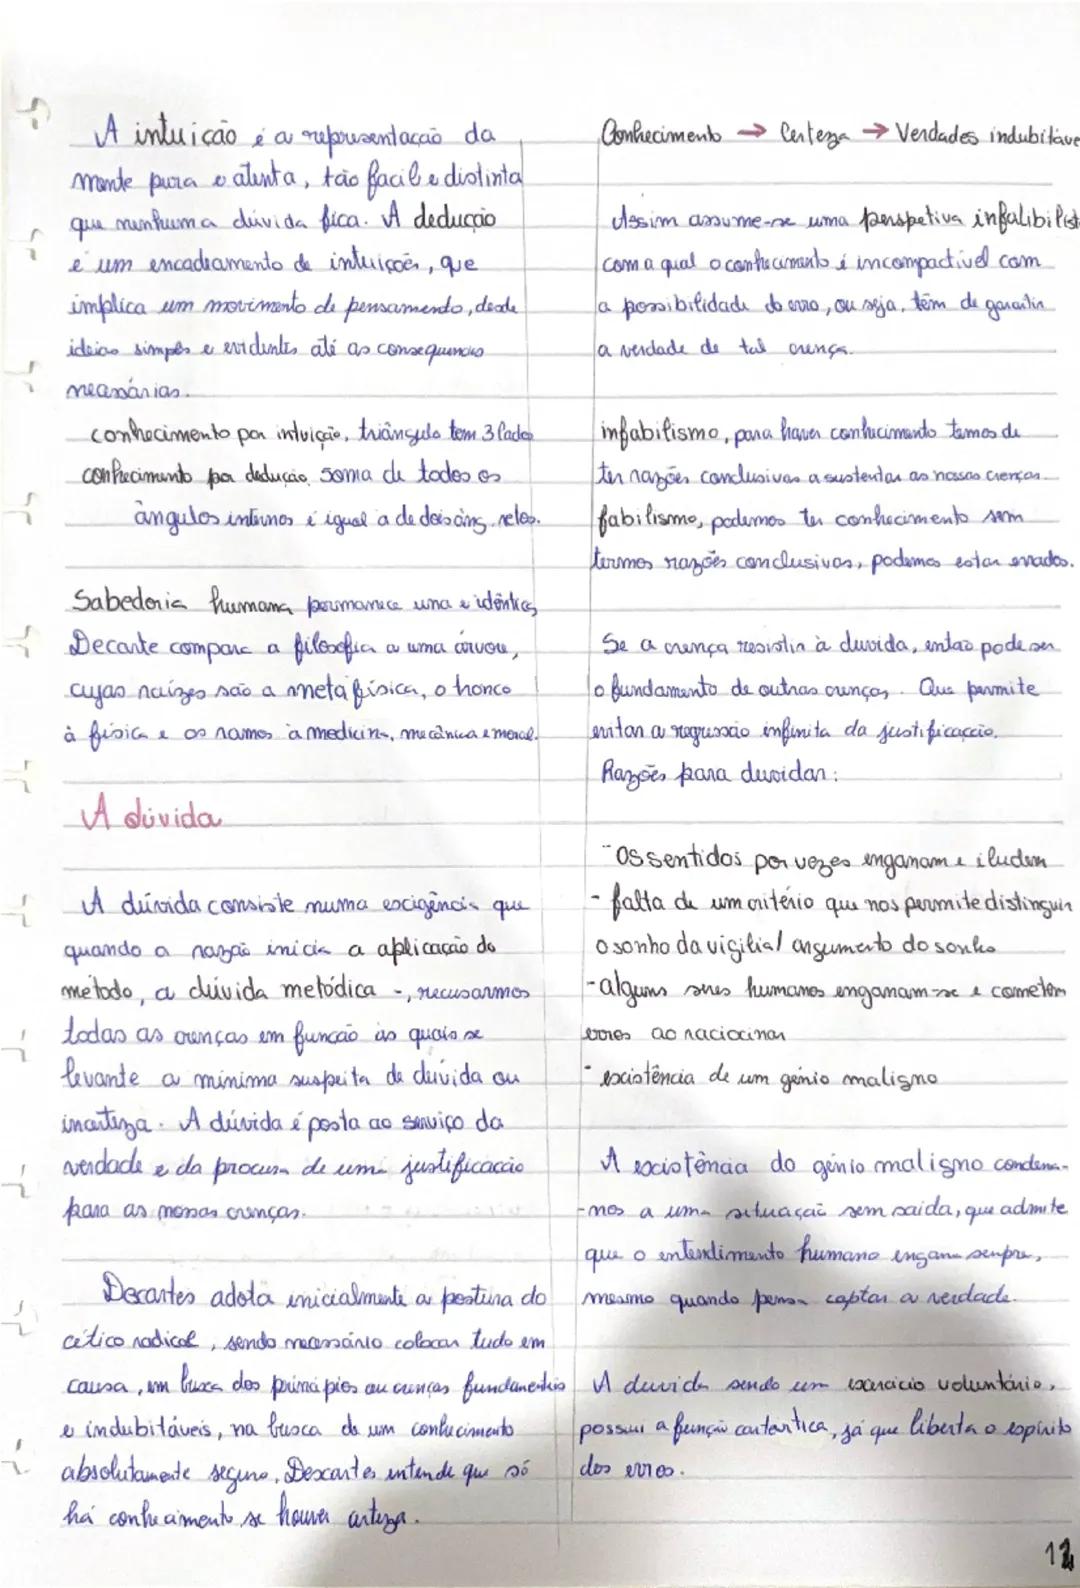 A intuição é a representação da
mente pura e atenta, tão facil e distinta
que nenhuma dúvida fica. A dedução
é um encadeamento de intuições, que
implica um movimento de pensamento, desde
ideias simples e evidentes até as consequencias
necessárias.
conhecimento por intuição, triângulo tem 3 lados
conhecimento por dedução, soma de todos os
ângulos internos é igual a de dois âng. retos.
Sabedoria humana permanece una e idêntica
Decarte compara a filosofia a uma árvore,
cujas raízes são a metafísica, o tronco
à física e os ramos à medicina, mecânica e moral.
A dúvida
A dúvida consiste numa exigência que
quando a razão inicia a aplicação do
método, a dúvida metódica -, recusarmos
todas as crenças em função às quais se
levante a minima suspeita de dúvida ou
incerteza. A dúvida é posta ao serviço da
verdade e da procura de uma justificação
para as nossas crenças.
Descartes adota inicialmente a postura do
cético radical, sendo necessário colocar tudo em
causa, em busca dos principios ou crenças fundamentais
e indubitáveis, na busca de um conhecimento
absolutamente seguro, Descartes entende que só
há conhecimento se houver certeza.
Conhecimento → Certeza → Verdades indubitáve
Assim assume-se uma perspetiva infalibilist
com a qual o conhecimento é incompactivel com
a possibilidade do erro, ou seja, têm de garantir
a verdade de tal crença.
infabilismo, para haver conhecimento temos de
ter razões conclusivas a sustentar as nossas crenças.
fabilismo, podemos ter conhecimento sem
termos razões conclusivas, podemos estar errados.
Se a crença resistir à duvida, então pode ser
o fundamento de outras crenças. Que permite
evitar a regressão infinita da justificação.
Razões para duvidar:
- Os sentidos por vezes enganam e iludem
- falta de um critério que nos permite distinguir
o sonho da vigilia/ argumento do sonho
- alguns seres humanos enganam-se e cometem
erros ao raciocinar
- existência de um génio maligno
A existência do génio maligno condena-
-nos a uma situação sem saida, que admite
que o entendimento humano engana sempre,
mesmo quando pensa captar a verdade.
A duvida sendo um exercicio voluntário,
possui a função cartártica, já que liberta o espirito
dos erros.